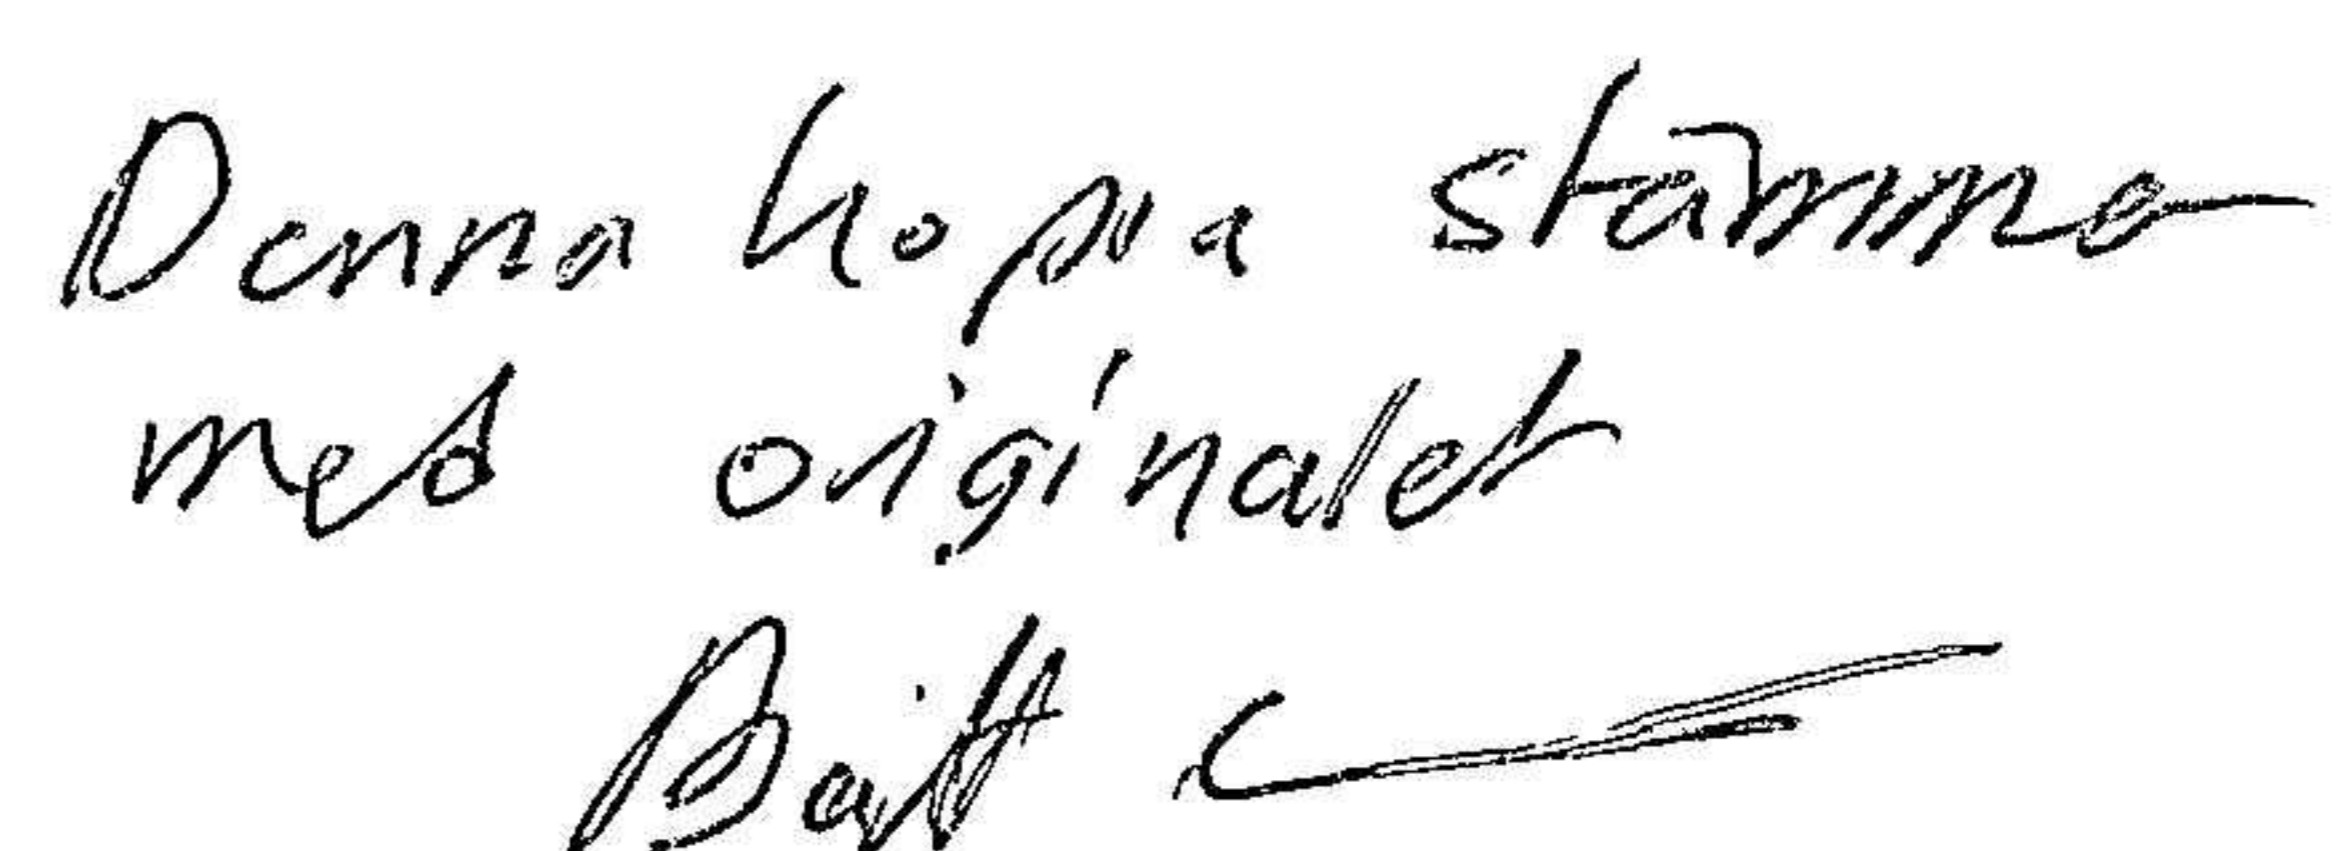 Denna kopia stämmer
med originalet
Britt